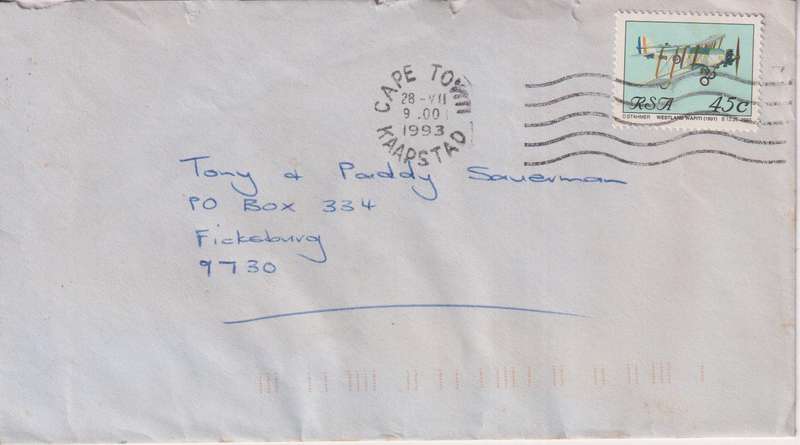 CAPE TOWN
28 -VII
9 .00
1993
KAAPSTAD
RSA 45c
D STAHMER WESTLAND WAPITI (1931)
Tony & Paddy Sauerman
PO Box 334
Ficksburg
9730